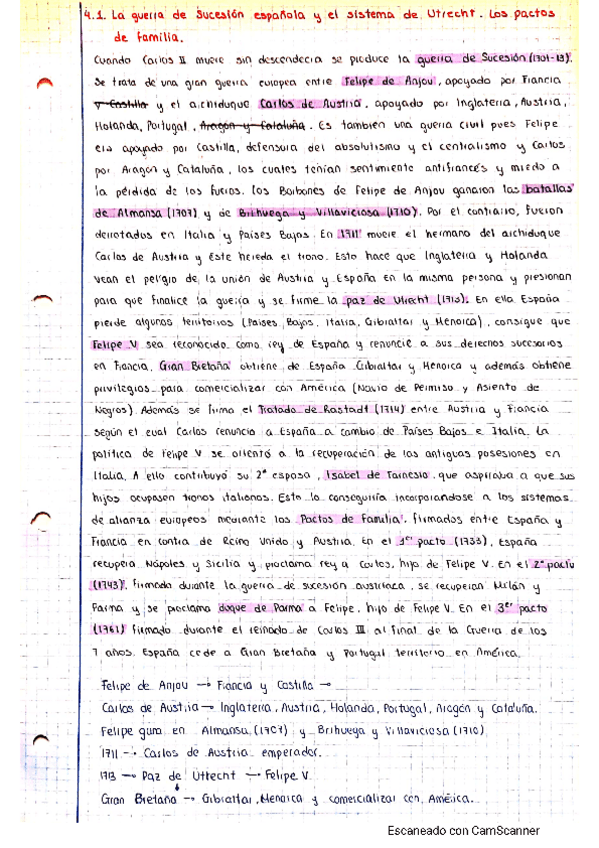 4.1. La guerra de Sucesión española y el sistema de Utrecht. Los pactos
de familia.
Cuando Carlos II muere sin descendecia se produce la guerra de Sucesión (1701-13).
Se trata de una gran guerra europea entre Felipe de Anjou, apoyado por Francia
y Castilla y el archiduque Carlos de Austria, apoyado por Inglaterra, Austria,
Holanda, Portugal, Aragón y Cataluña. Es también una guerra civil pues Felipe
era apoyado por Castilla, defensora del absolutismo y el centralismo y Carlos
por Aragón y Cataluña, los cuales tenían sentimiento antifrancés y miedo a
la pérdida de los fueros. Los Borbones de Felipe de Anjou ganaron las batallas
de Almansa (1707) y de Brihuega y Villaviciosa (1710). Por el contrario, fueron
derrotados en Italia y Países Bajos. En 1711 muere el hermano del archiduque
Carlos de Austria y éste hereda el trono. Esto hace que Inglaterra y Holanda
vean el peligro de la unión de Austria y España en la misma persona y presionan
para que finalice la guerra y se firme la paz de Utrecht (1713). En ella España
pierde algunos territorios (Países, Bajos, Italia, Gibraltar y Menorca), consigue que
Felipe V sea reconocido como rey de España y renuncie a sus derechos sucesorios
en Francia. Gran Bretaña obtiene de España Gibraltar y Menorca y además obtiene
privilegios para comercializar con América (Navío de Permiso y Asiento de
Negros). Además se firma el Tratado de Rastadt (1714) entre Austria y Francia
según el cual Carlos renuncia a España a cambio de Países Bajos e Italia. La
política de Felipe V se orientó a la recuperación de las antiguas posesiones en
Italia. A ello contribuyó su 2ª esposa, Isabel de Farnesio, que aspiraba a que sus
hijos ocupasen tronos italianos. Esto lo conseguiría incorporandose a los sistemas
de alianza europeos mediante los Pactos de Familia, firmados entre España y
Francia en contra de Reino Unido y Austria. En el 1er pacto (1733), España
recupera Nápoles y Sicilia y proclama rey a Carlos, hijo de Felipe V. En el 2º pacto
(1743), firmado durante la guerra de sucesión austríaca, se recuperan Milán y
Parma y se proclama duque de Parma a Felipe, hijo de Felipe V. En el 3er pacto
(1761) firmado durante el reinado de Carlos III al final de la Guerra de los
7 años, España cede a Gran Bretaña y Portugal territorio en América.
Felipe de Anjou → Francia y Castilla →
Carlos de Austria → Inglaterra, Austria, Holanda, Portugal, Aragón y Cataluña.
Felipe gana en Almansa (1707) y Brihuega y Villaviciosa (1710)
1711 → Carlos de Austria emperador.
1713 → Paz de Utrecht → Felipe V.
Gran Bretaña → Gibraltar, Menorca y comercializar con América.
Escaneado con CamScanner